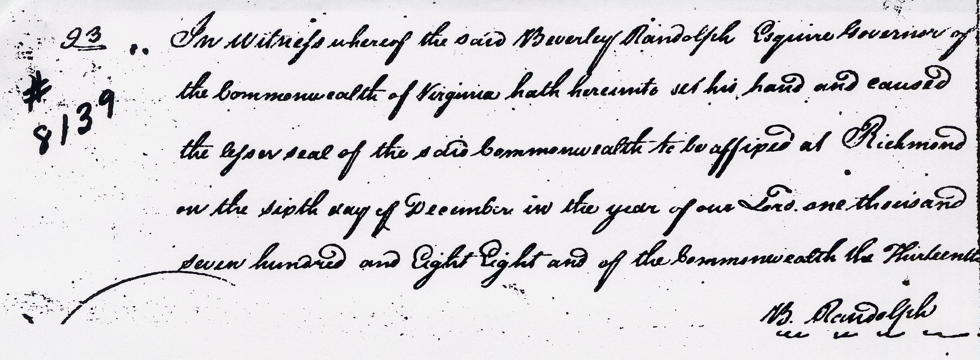 23
# 8139
In Witness whereof the said Beverley Randolph Esquire Governor of
the Commonwealth of Virginia hath hereunto set his hand and caused
the lesser seal of the said Commonwealth to be affixed at Richmond
on the sixth day of December in the year of our Lord one thousand
seven hundred and Eight Eight and of the Commonwealth the Thirteenth
B. Randolph